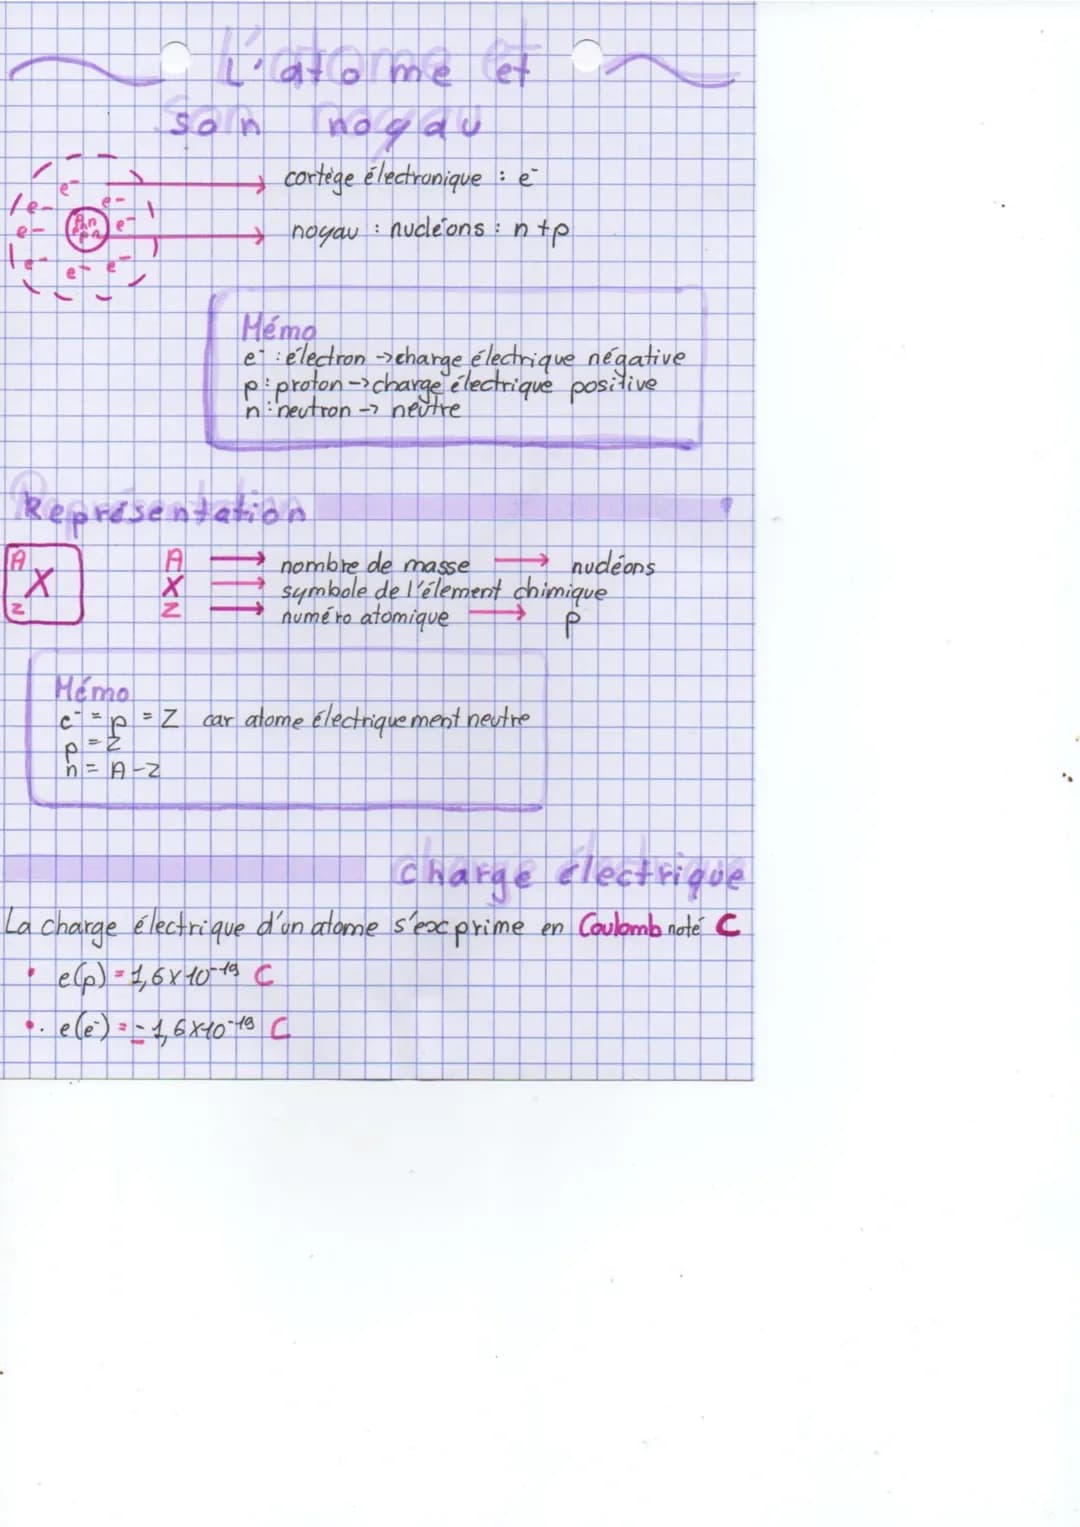 L'atome et
son noyau
cortège électronique : e⁻
noyau : nucléons : n+p
e⁻
e⁻
e⁻
e⁻
e⁻
e⁻
e⁻
e⁻
Mémo
e⁻ : électron -> charge électrique négative
p : proton -> charge électrique positive
n : neutron -> neutre
Représentation
A
X
Z
A → nombre de masse → nucléons
X → symbole de l'élement chimique
Z → numéro atomique → p
Mémo
e⁻ = p = Z car atome électriquement neutre
p = Z
n = A-Z
charge électrique
La charge électrique d'un atome s'exprime en Coulomb noté C
• e(p) = 1,6 x 10⁻¹⁹ C
• e(e⁻) = -1,6 x 10⁻¹⁹ C